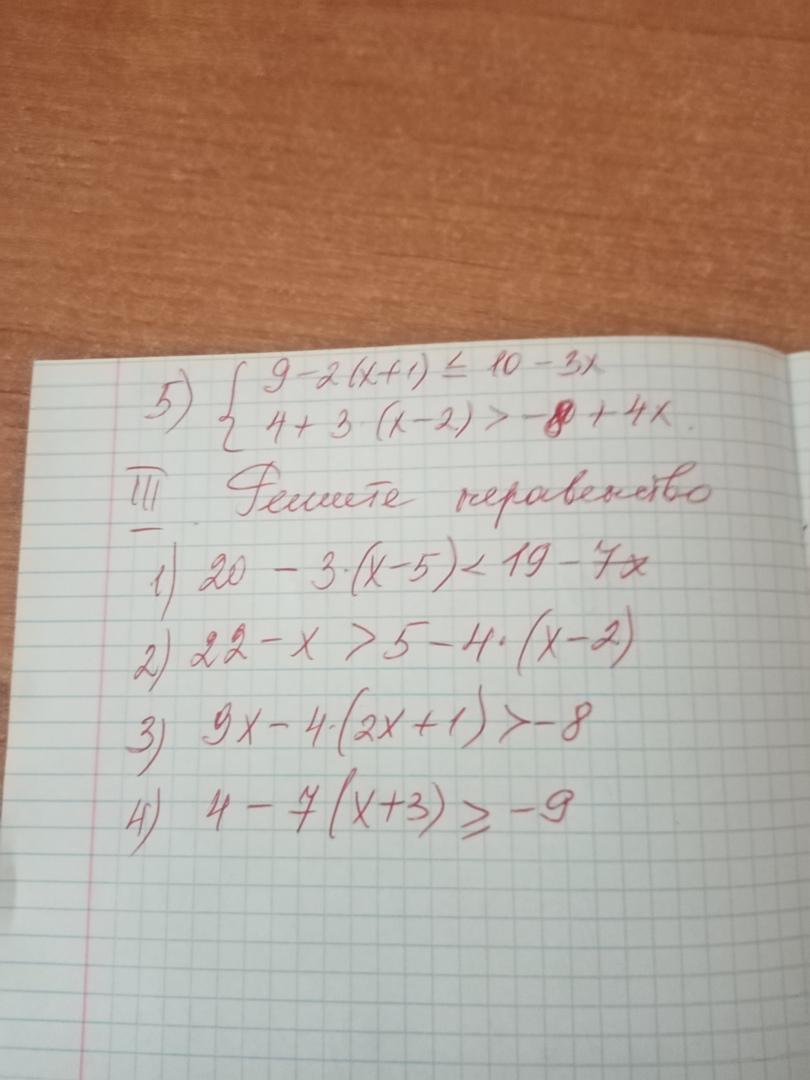 5) { 9 - 2(x+1) ≤ 10 - 3x
4 + 3·(x-2) > -8 + 4x.
III Решите неравенство
1) 20 - 3·(x-5) < 19 - 7x
2) 22 - x > 5 - 4·(x-2)
3) 9x - 4·(2x+1) > -8
4) 4 - 7(x+3) ≥ -9